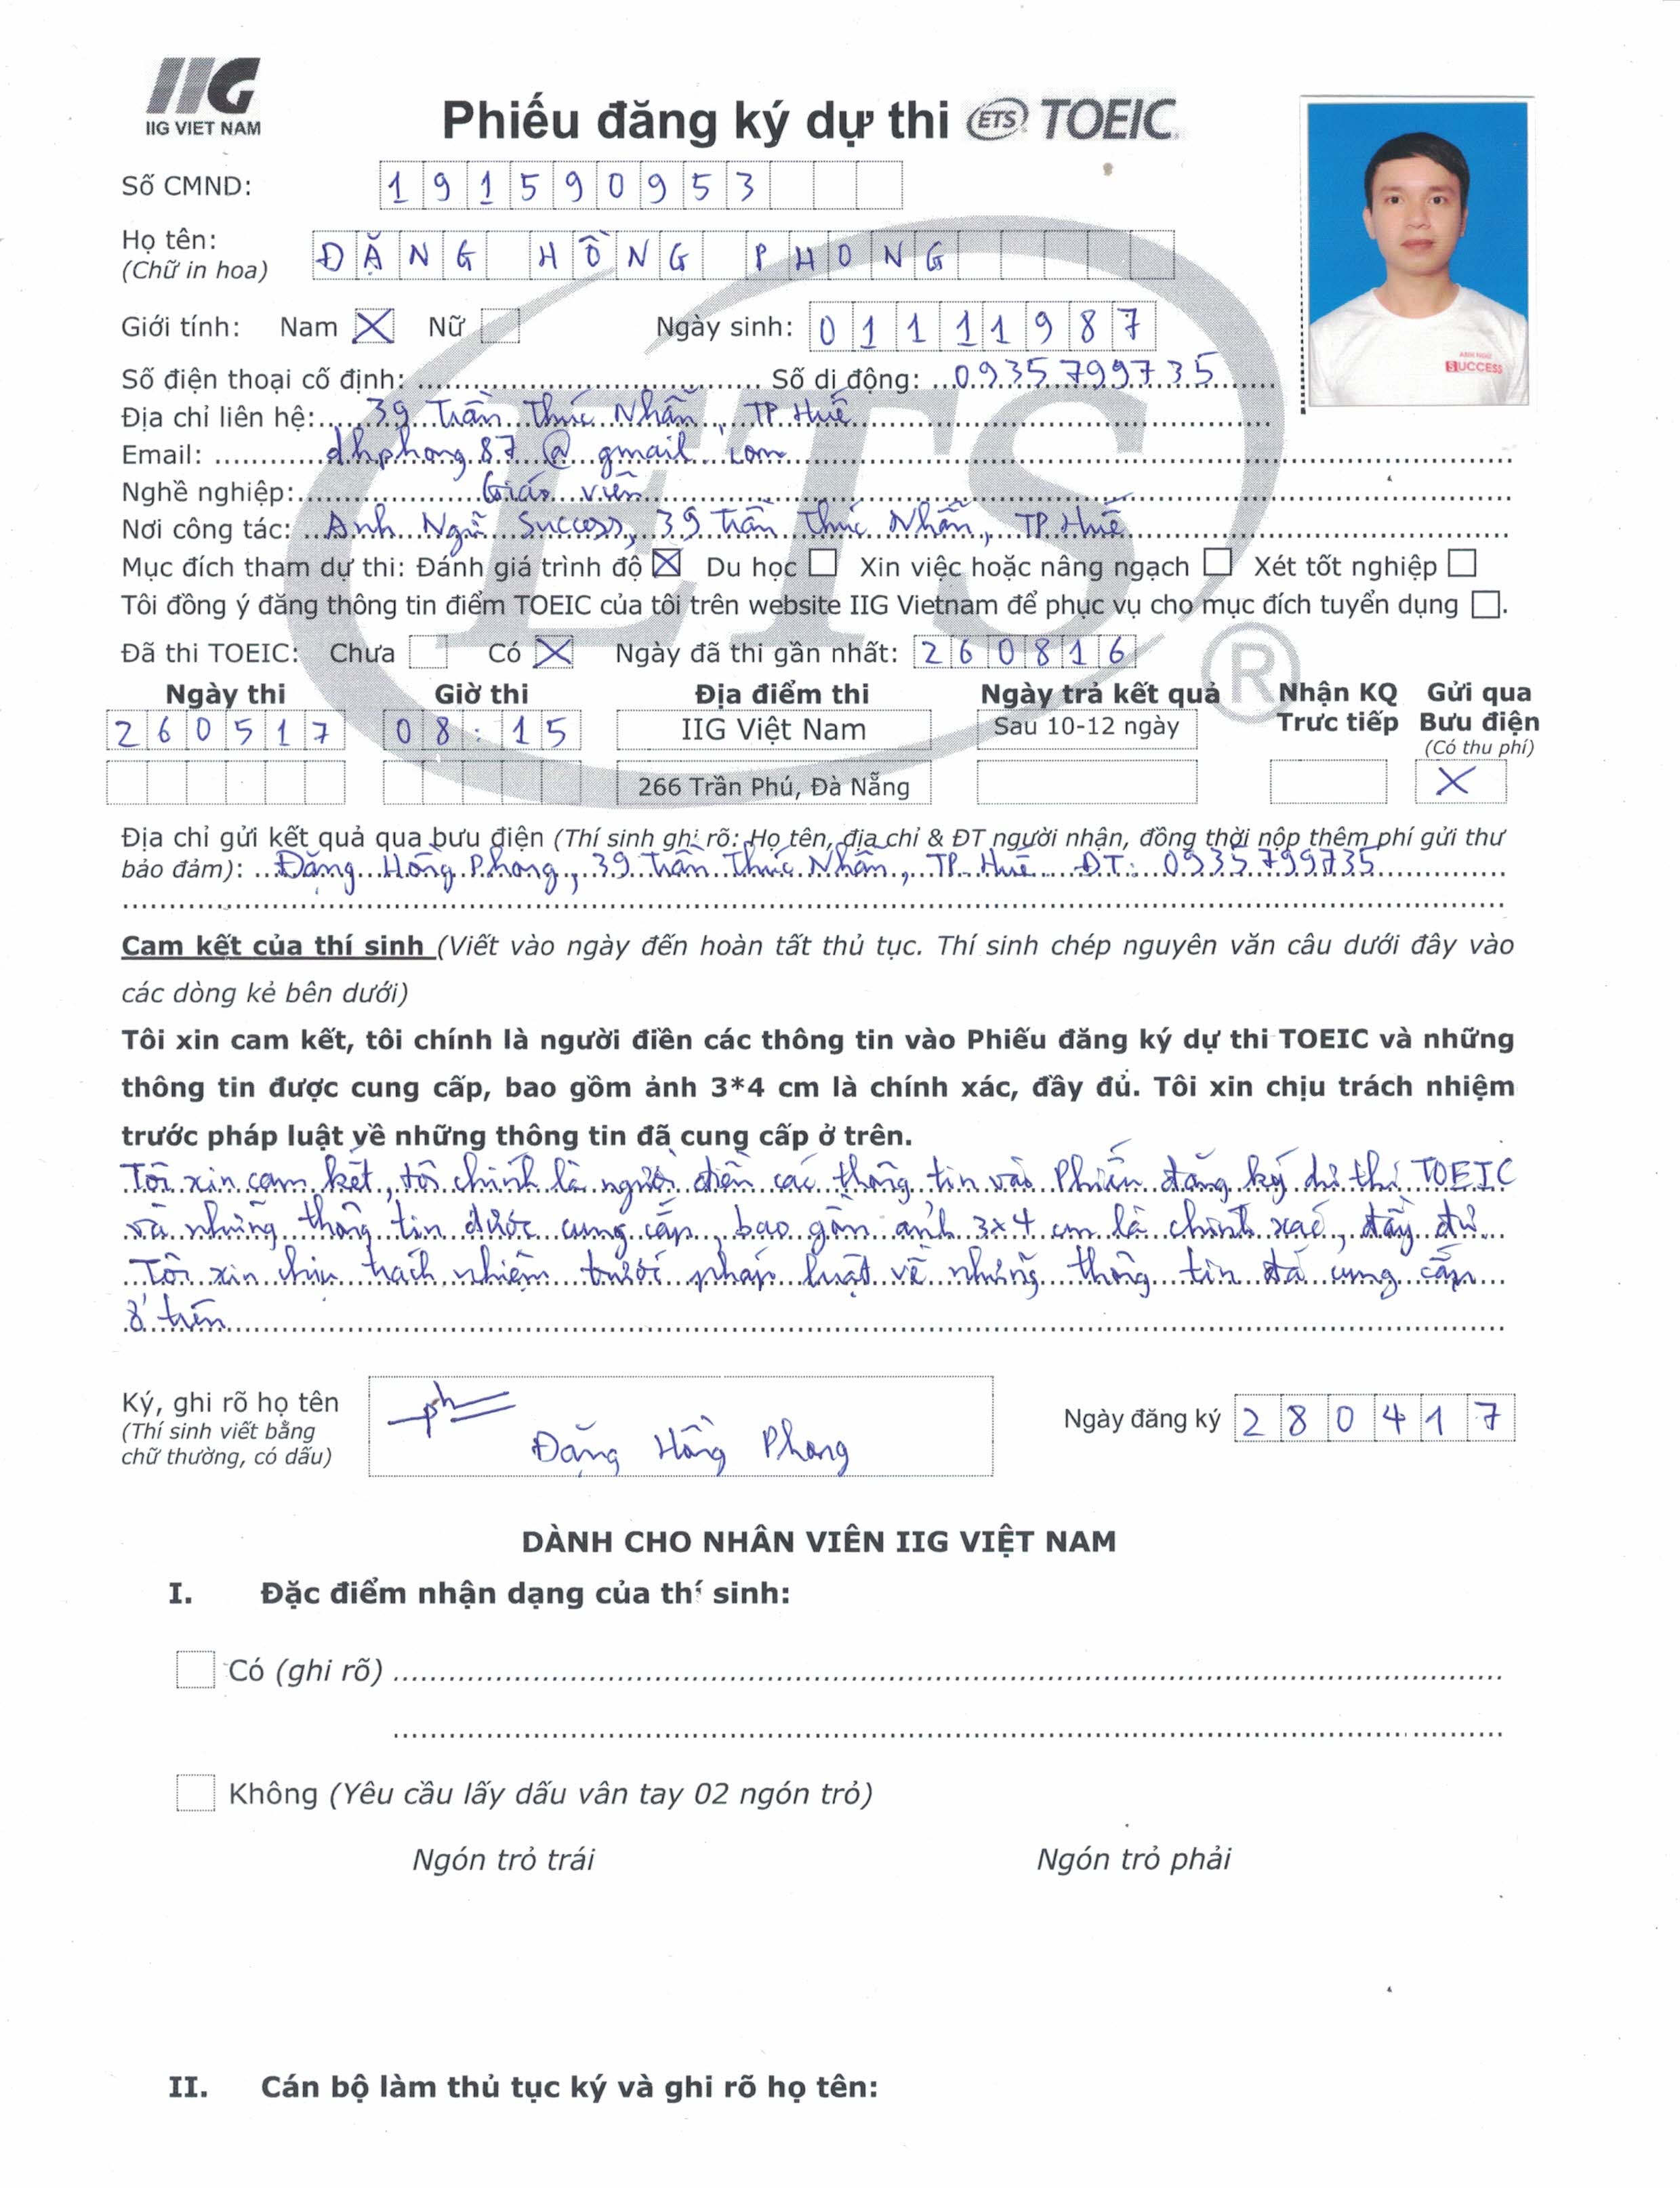 IIG
IIG VIET NAM
Phiếu đăng ký dự thi ETS® TOEIC®
Số CMND: 191590953
Họ tên: ĐẶNG HỒNG PHONG
(Chữ in hoa)
Giới tính: Nam X Nữ Ngày sinh: 01111987
Số điện thoại cố định: Số di động: 0935799735
Địa chỉ liên hệ: 39 Trần Thúc Nhẫn, TP Huế
Email: dhphong87@gmail.com
Nghề nghiệp: Giáo viên
Nơi công tác: Anh Ngữ Success, 39 Trần Thúc Nhẫn, TP. Huế
Mục đích tham dự thi: Đánh giá trình độ X Du học Xin việc hoặc nâng ngạch Xét tốt nghiệp
Tôi đồng ý đăng thông tin điểm TOEIC của tôi trên website IIG Vietnam để phục vụ cho mục đích tuyển dụng .
Đã thi TOEIC: Chưa Có X Ngày đã thi gần nhất: 260816
Ngày thi Giờ thi Địa điểm thi Ngày trả kết quả Nhận KQ Gửi qua
260517 08:15 IIG Việt Nam Sau 10-12 ngày Trực tiếp Bưu điện
(Có thu phí)
266 Trần Phú, Đà Nẵng X
Địa chỉ gửi kết quả qua bưu điện (Thí sinh ghi rõ: Họ tên, địa chỉ & ĐT người nhận, đồng thời nộp thêm phí gửi thư
bảo đảm): Đặng Hồng Phong, 39 Trần Thúc Nhẫn, TP. Huế ĐT: 0935799735
Cam kết của thí sinh (Viết vào ngày đến hoàn tất thủ tục. Thí sinh chép nguyên văn câu dưới đây vào
các dòng kẻ bên dưới)
Tôi xin cam kết, tôi chính là người điền các thông tin vào Phiếu đăng ký dự thi TOEIC và những
thông tin được cung cấp, bao gồm ảnh 3*4 cm là chính xác, đầy đủ. Tôi xin chịu trách nhiệm
trước pháp luật về những thông tin đã cung cấp ở trên.
Tôi xin cam kết, tôi chính là người điền các thông tin vào Phiếu đăng ký dự thi TOEIC
và những thông tin được cung cấp, bao gồm ảnh 3x4 cm là chính xác, đầy đủ.
Tôi xin chịu trách nhiệm trước pháp luật về những thông tin đã cung cấp
ở trên
Ký, ghi rõ họ tên
(Thí sinh viết bằng
chữ thường, có dấu)
Đặng Hồng Phong
Ngày đăng ký 280417
DÀNH CHO NHÂN VIÊN IIG VIỆT NAM
I. Đặc điểm nhận dạng của thí sinh:
Có (ghi rõ)
Không (Yêu cầu lấy dấu vân tay 02 ngón trỏ)
Ngón trỏ trái Ngón trỏ phải
II. Cán bộ làm thủ tục ký và ghi rõ họ tên:
ETS®
ANH NGỮ
SUCCESS